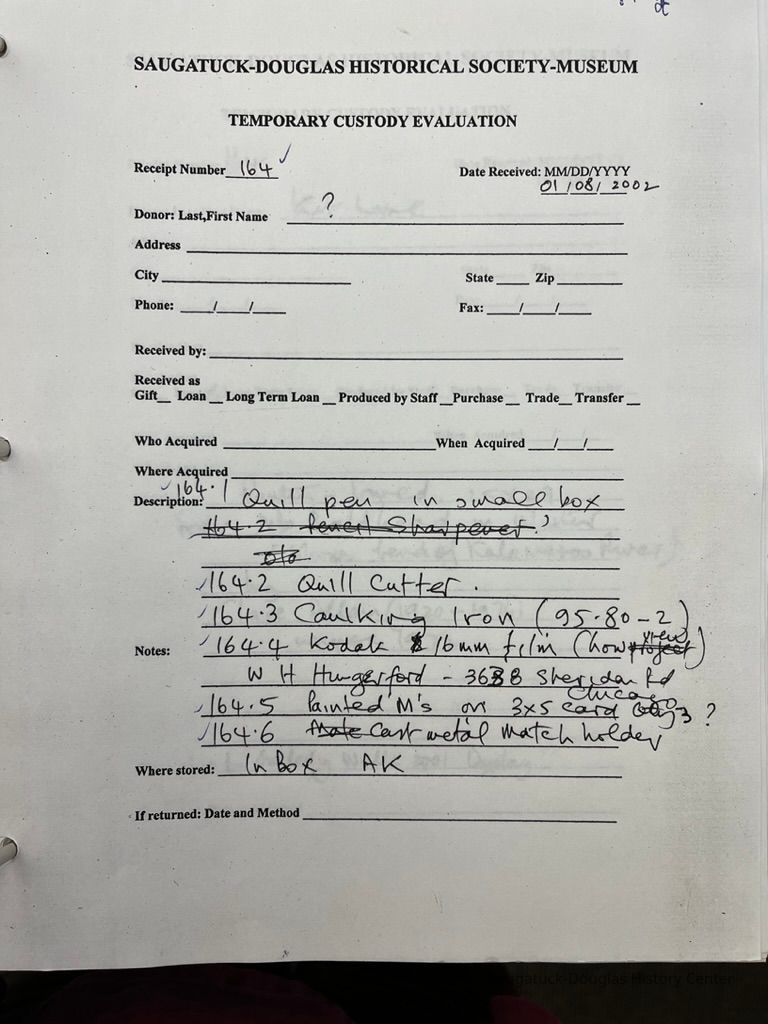 SAUGATUCK-DOUGLAS HISTORICAL SOCIETY-MUSEUM
TEMPORARY CUSTODY EVALUATION
Receipt Number 164 ✓ Date Received: MM/DD/YYYY
01/08/2002
Donor: Last,First Name ?
Address
City State Zip
Phone: / / Fax: / /
Received by:
Received as
Gift__ Loan __ Long Term Loan __ Produced by Staff __Purchase __ Trade__ Transfer __
Who Acquired When Acquired / /
Where Acquired
Description: ✓164.1 Quill pen in small box
164.2 Pencil Sharpener?
✓164.2 Quill Cutter.
✓164.3 Caulking Iron (95.80-2)
Notes: ✓164.4 Kodak 16mm film (how view project)
W H Hungerford - 3638 Sheridan Rd
Chicago
✓164.5 Painted M's on 3x5 card ?
✓164.6 Cast metal match holder
Where stored: In Box AK
If returned: Date and Method
Saugatuck-Douglas History Center